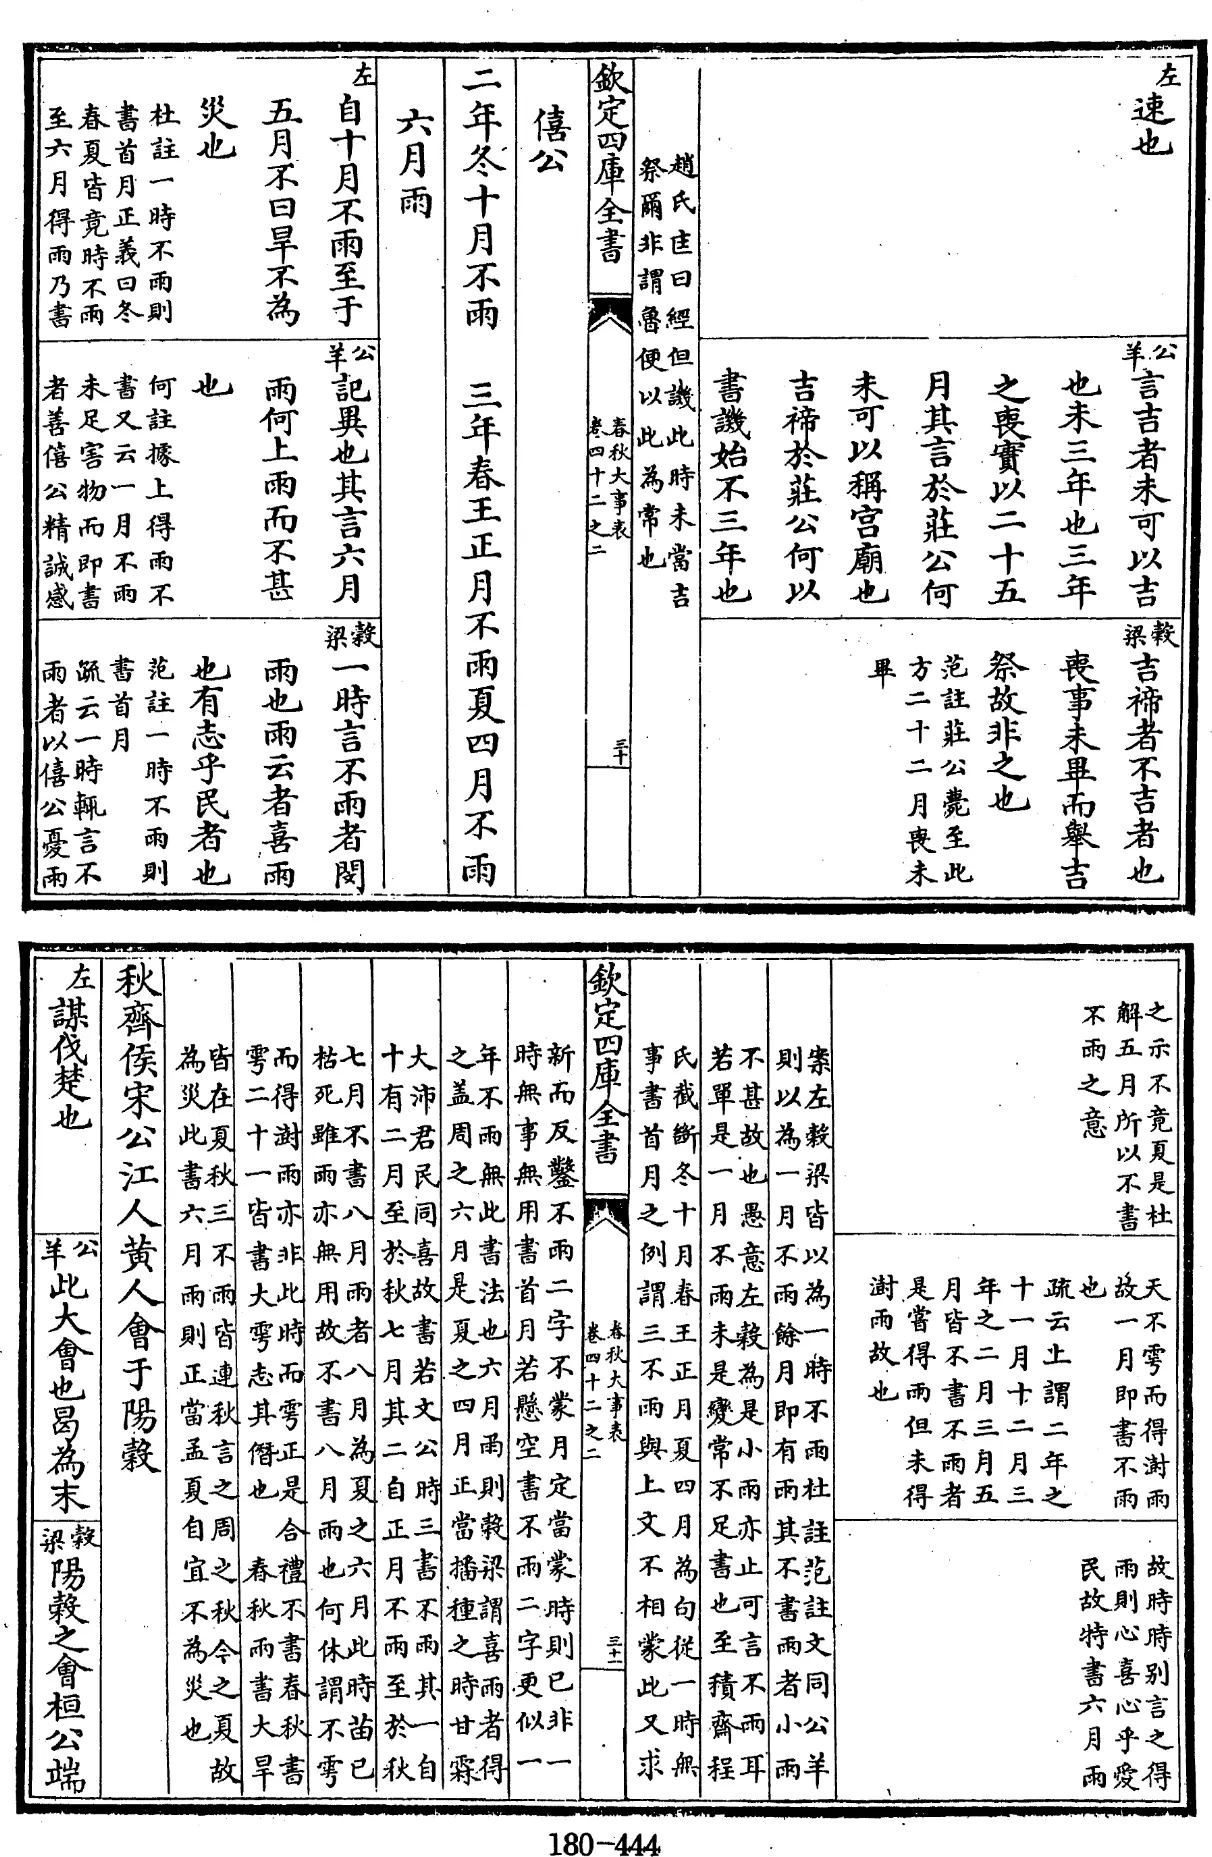 左
速也
公羊
言吉者未可以吉
也未三年也三年
之喪實以二十五
月其言於莊公何
未可以稱宫廟也
吉禘於莊公何以
書譏始不三年也
穀梁
吉禘者不吉者也
喪事未畢而舉吉
祭故非之也
范註莊公薨至此
方二十二月喪未
畢
趙氏匡曰經但譏此時未當吉
祭爾非謂魯便以此為常也
欽定四庫全書
春秋大事表
卷四十二之二
三十
僖公
二年冬十月不雨 三年春王正月不雨夏四月不雨
六月雨
左
自十月不雨至于
五月不曰旱不為
災也
杜註一時不雨則
書首月正義曰冬
春夏皆竟時不雨
至六月得雨乃書
公羊
記異也其言六月
雨何上雨而不甚
也
何註據上得雨不
書又云一月不雨
未足害物而即書
者善僖公精誠感
穀梁
一時言不雨者閔
雨也雨云者喜雨
也有志乎民者也
范註一時不雨則
書首月
疏云一時輒言不
雨者以僖公憂雨
之示不竟夏是杜
解五月所以不書
不雨之意
天不雩而得澍雨
故一月即書不雨
也
疏云上謂二年之
十一月十二月三
年之二月三月五
月皆不書不雨者
是嘗得雨但未得
澍雨故也
故時時别言之得
雨則心喜心乎愛
民故特書六月雨
案左穀梁皆以為一時不雨杜註范註文同公羊
則以為一月不雨餘月即有雨其不書雨者小雨
不甚故也愚意左穀為是小雨亦止可言不雨耳
若單是一月不雨未是變常不足書也至積齋程
氏截斷冬十月春王正月夏四月為句從一時無
事書首月之例謂三不雨與上文不相蒙此又求
欽定四庫全書
春秋大事表
卷四十二之二
三十一
新而反鑿不雨二字不蒙月定當蒙時則已非一
時無事無用書首月若懸空書不雨二字更似一
年不雨無此書法也六月雨則穀梁謂喜雨者得
之盖周之六月是夏之四月正當播種之時甘霖
大沛君民同喜故書若文公時三書不雨其一自
十有二月至於秋七月其二自正月不雨至於秋
七月不書八月雨者八月為夏之六月此時苗已
枯死雖雨亦無用故不書八月雨也何休謂不雩
而得澍雨亦非此時而雩正是合禮不書春秋書
雩二十一皆書大雩志其僭也 春秋雨書大旱
皆在夏秋三不雨皆連秋言之周之秋今之夏故
為災此書六月雨則正當孟夏自宜不為災也
秋齊侯宋公江人黄人會于陽穀
左
謀伐楚也
公羊
此大會也曷為末
穀梁
陽穀之會桓公端
180-444